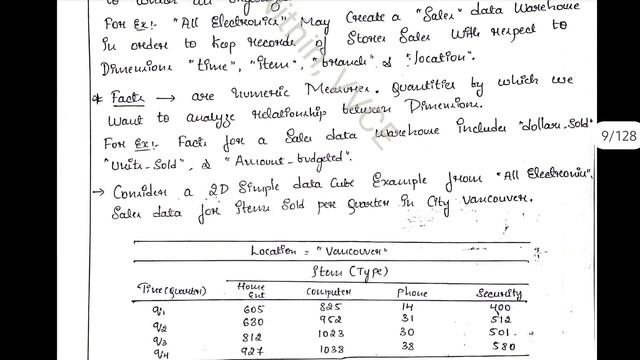 For Ex:- "All Electronics" May Create a "Sales" data Warehouse
In order to keep records of Stores Sales With respect to
Dimensions "time", "Item", "branch" & "location".
* Facts → are numeric Measures. Quantities by which we
Want to analyze relationship between Dimensions.
For Ex:- Facts for a Sales data Warehouse Includes "dollars_Sold"
"Units_Sold", & "Amount_budgeted".
9/128
→ Consider a 2D Simple data Cube Example from "All Electronics",
Sales data for Items Sold per Quarter in City Vancouver.
Location = "Vancouver"
Item (Type)
Time (Quarter) Home Ent Computer Phone Security
Q1 605 825 14 400
Q2 680 952 31 512
Q3 812 1023 30 501
Q4 927 1038 38 580